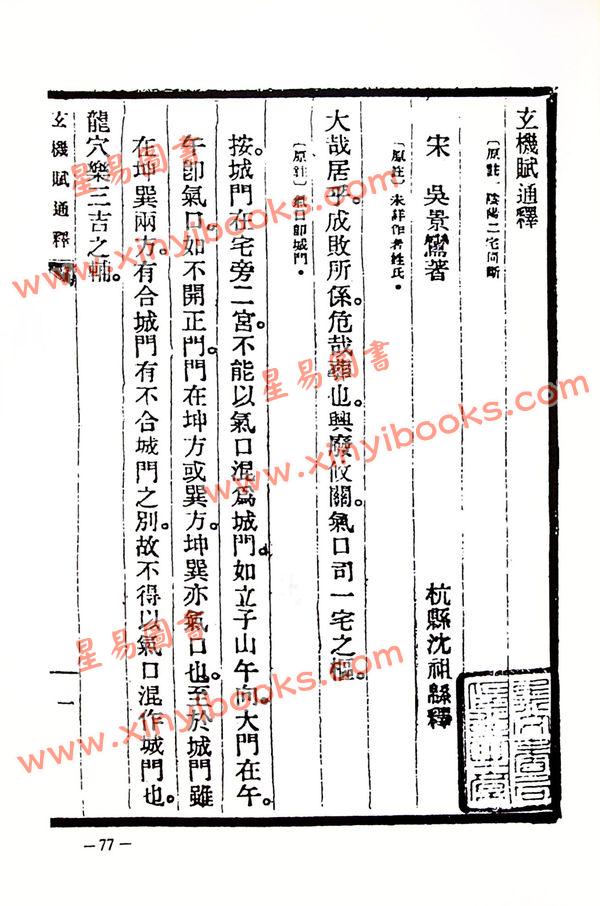 玄機賦通釋
〔原註〕陰陽二宅同斷
宋 吳景鸞著 杭縣沈祖緜釋
〔原註〕未詳作者姓氏。
大哉居乎。成敗所係。危哉葬也。興廢攸關。氣口司一宅之樞。
〔原註〕氣口卽城門。
按。城門在宅旁二宮。不能以氣口混爲城門。如立子山午向。大門在午。
午卽氣口。如不開正門。門在坤方或巽方。坤巽亦氣口也。至於城門雖
在坤巽兩方。有合城門有不合城門之別。故不得以氣口混作城門也。
龍穴樂三吉之輔。
玄機賦通釋
一
—77—
星易圖書
www.xinyibooks.com
星易圖書
www.xinyibooks.com
星易圖書
www.xinyibooks.com